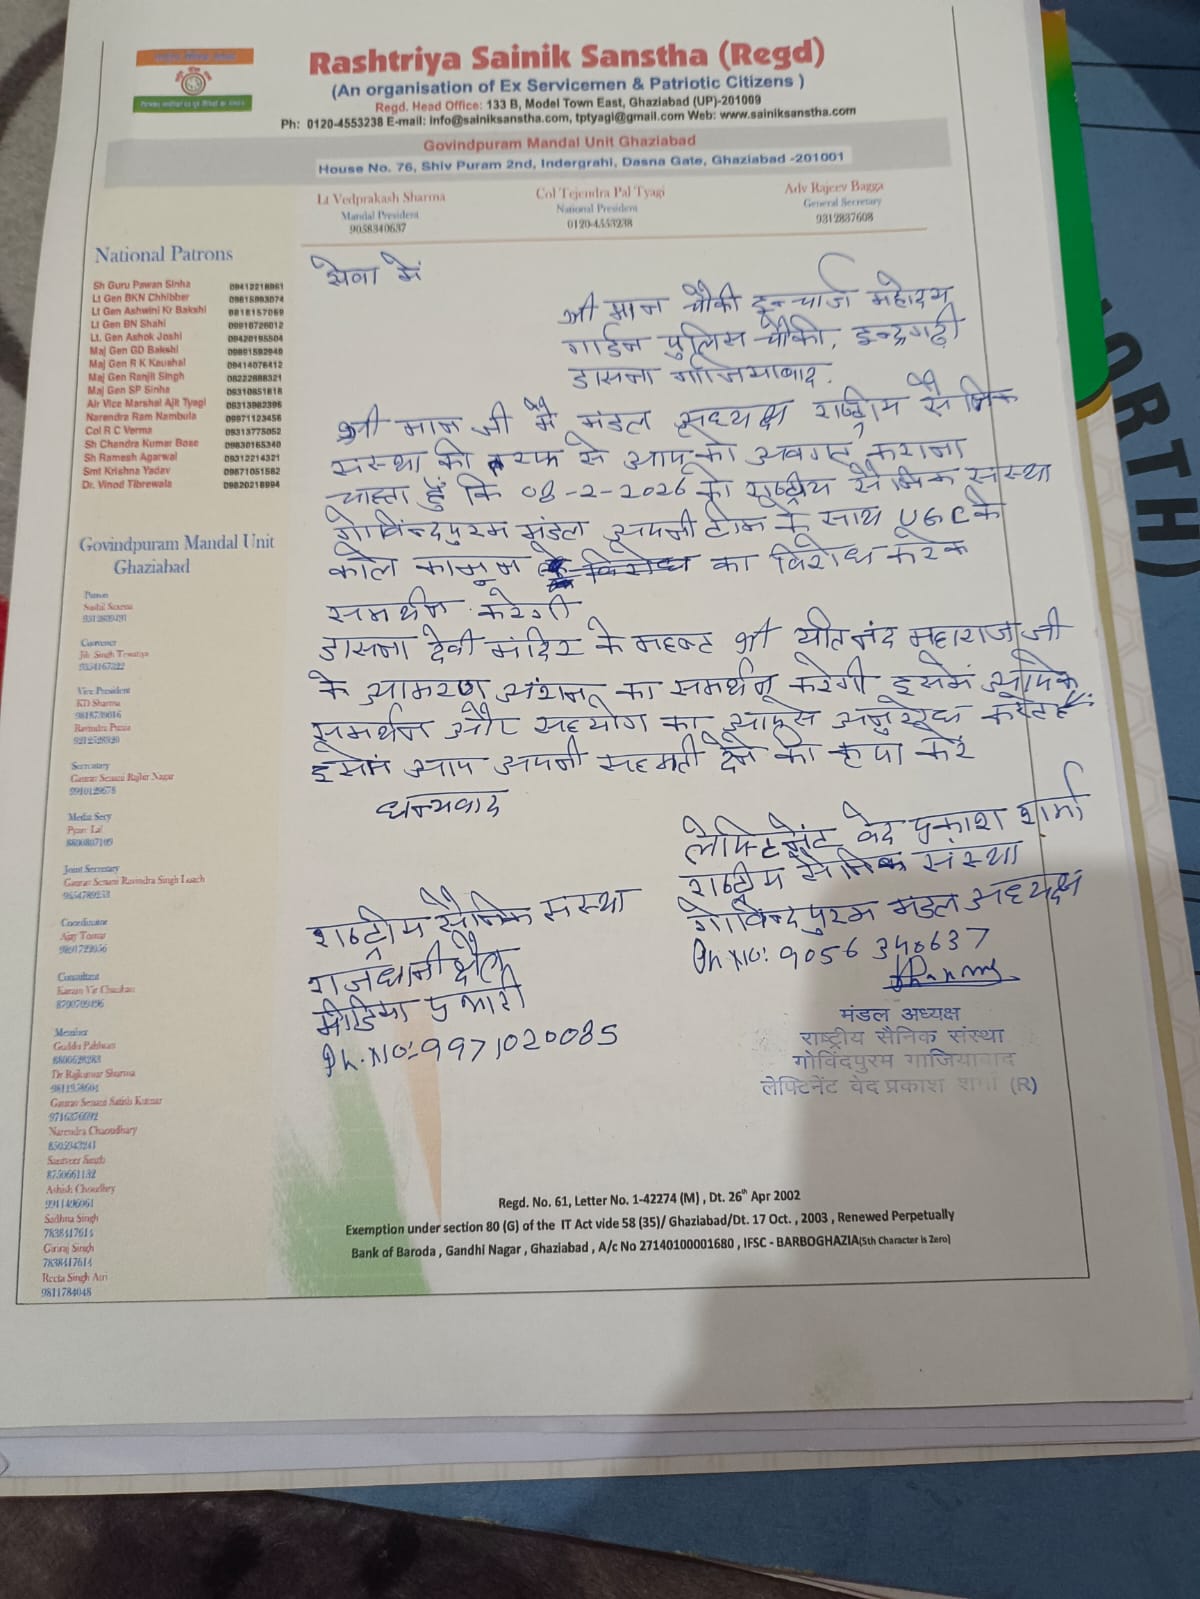 Rashtriya Sainik Sanstha (Regd)
(An organisation of Ex Servicemen & Patriotic Citizens )
Regd. Head Office: 133 B, Model Town East, Ghaziabad (UP)-201009
Ph: 0120-4553238 E-mail: info@sainiksanstha.com, tptyagi@gmail.com Web: www.sainiksanstha.com
Govindpuram Mandal Unit Ghaziabad
House No. 76, Shiv Puram 2nd, Indergrahi, Dasna Gate, Ghaziabad -201001
Lt Vedprakash Sharma
Mandal President
9058340637
Col Tejendra Pal Tyagi
National President
0120-4553238
Adv Rajeev Bagga
General Secretary
9312837608
National Patrons
Sh Guru Pawan Sinha
Lt Gen BKN Chhibber
Lt Gen Ashwini Kr Bakshi
Lt Gen BN Shahi
Lt. Gen Ashok Joshi
Maj Gen GD Bakshi
Maj Gen R K Kaushal
Maj Gen Ranjit Singh
Maj Gen SP Sinha
Air Vice Marshal Ajit Tyagi
Narendra Ram Nambula 09971123456
Col R C Verma
Sh Chandra Kumar Bose 09830165340
Sh Ramesh Agarwal 09312214321
Smt Krishna Yadav 09871051582
Dr. Vinod Tibrewala 09820218994
Govindpuram Mandal Unit
Ghaziabad
Patron
Convener
Vice President
KD Sharma
Secretary
Gaurav Senani Rajbir Nagar
9910129678
Media Secy
Pyare Lal
Joint Secretary
Gaurav Senani Ravindra Singh
Coordinator
Ajay Tomar
Consultant
Karan Vir Chauhan
Member
Guddu Pahlwan
Dr Rajkumar Sharma
Gaurav Senani Satish Kumar
9716376692
Narendra Chaoudhary
8505943241
Santveer Singh
8750661132
Ashish Choudhry
Sadhna Singh
7838417614
Giriraj Singh
7838417614
Reeta Singh
9811784048
सेवा में
श्री मान चौकी इन्चार्ज महोदय
गार्डन पुलिस चौकी, इन्द्रगढ़ी
डासना गाजियाबाद.
श्री मान जी मैं मंडल अध्यक्ष राष्ट्रीय सैनिक
संस्था की तरफ से आपको अवगत कराना
चाहता हूँ कि 08-2-2026 को राष्ट्रीय सैनिक संस्था
गोविन्दपुरम मंडल अपनी टीम के साथ UGC के
काले कानून का विरोध करेक
समर्थन करेगी
डासना देवी मंदिर के महन्त श्री यीतनंद महाराज जी
के आमरण अंशन का समर्थन करेगी इसमें आपके
समर्थन और सहयोग का आपसे अनुरोध करते है
इसमें आप अपनी सहमती देने की कृपा करें
धन्यवाद
लेफ्टिनेंट वेद प्रकाश शर्मा
राष्ट्रीय सैनिक संस्था
गोविन्दपुरम मंडल अध्यक्ष
Ph NO: 9056340637
राष्ट्रीय सैनिक संस्था
राजधानी क्षेत्र
मीडिया प्रभारी
Ph. NO: 9971020085
मंडल अध्यक्ष
राष्ट्रीय सैनिक संस्था
गोविंदपुरम गाजियाबाद
लेफ्टिनेंट वेद प्रकाश शर्मा (R)
Regd. No. 61, Letter No. 1-42274 (M) , Dt. 26th Apr 2002
Exemption under section 80 (G) of the IT Act vide 58 (35)/ Ghaziabad/Dt. 17 Oct. , 2003 , Renewed Perpetually
Bank of Baroda , Gandhi Nagar , Ghaziabad , A/c No 27140100001680 , IFSC - BARBOGHAZIA(5th Character is Zero)
ORTH)